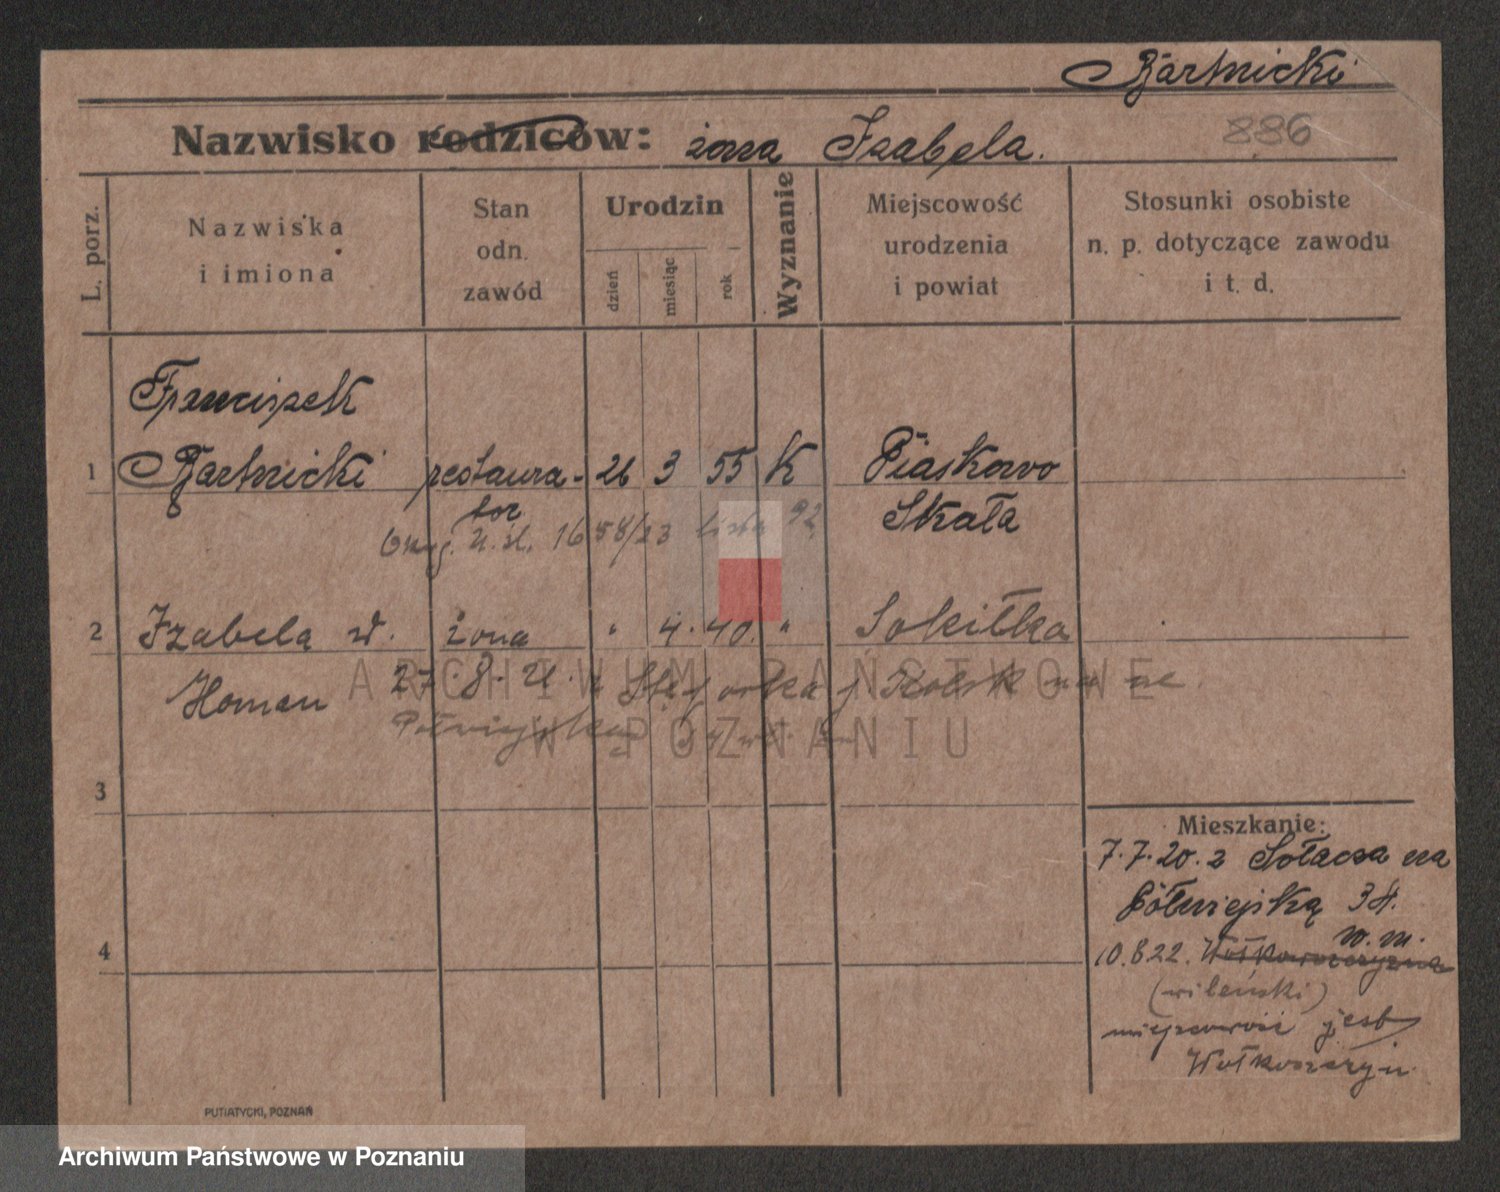 Bartnicki
Nazwisko rodziców: żona Izabela.
886
L. porz.
Nazwiska
i imiona
Stan
odn.
zawód
Urodzin
dzień
miesiąc
rok
Wyznanie
Miejscowość
urodzenia
i powiat
Stosunki osobiste
n. p. dotyczące zawodu
i t. d.
Franciszek
1 Bartnicki restaura- 26 3 55 K Piaskowo
tor Skała
16 58/23 lista 92
2 Izabela żona " 4. 40. " Sokiłka
Homan 27. 8. 21.
3
Mieszkanie:
7.7.20. z Sołacza na
Półwiejską 34.
w. m.
10.8 22. Wołkowszczyzna
(wileński)
miejscowość jest
4
PUTIATYCKI, POZNAŃ
ARCHIWUM PAŃSTWOWE
W POZNANIU
Archiwum Państwowe w Poznaniu